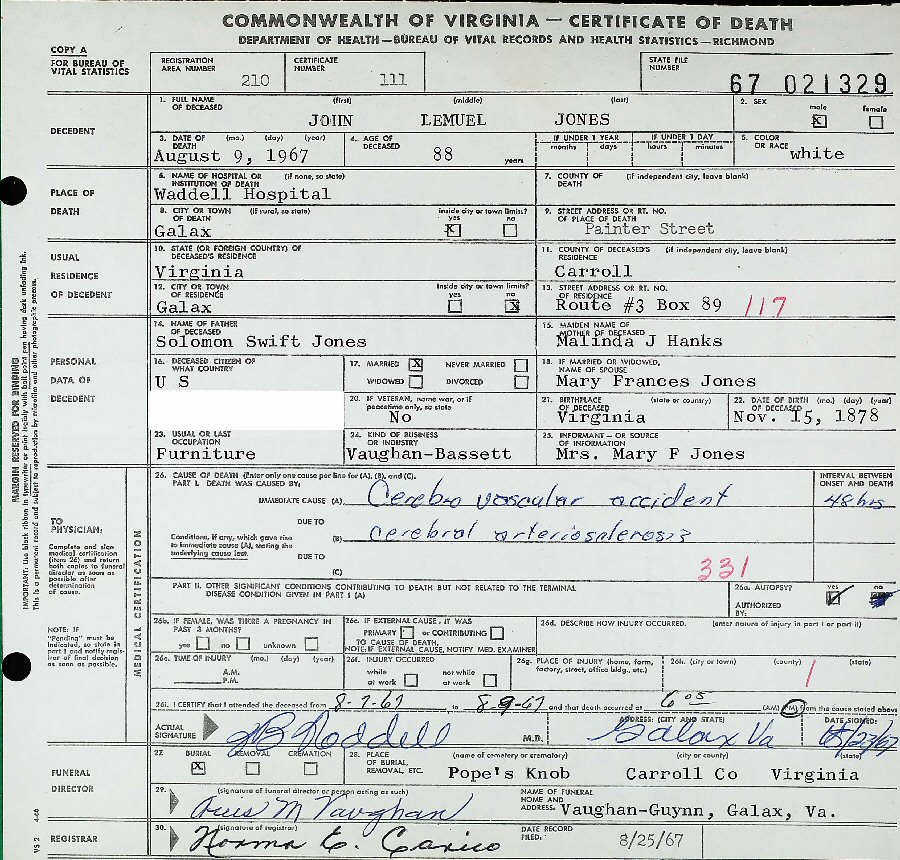 COMMONWEALTH OF VIRGINIA — CERTIFICATE OF DEATH
DEPARTMENT OF HEALTH—BUREAU OF VITAL RECORDS AND HEALTH STATISTICS—RICHMOND
COPY A
FOR BUREAU OF
VITAL STATISTICS
REGISTRATION
AREA NUMBER 210
CERTIFICATE
NUMBER 111
STATE FILE
NUMBER 67 021329
DECEDENT
1. FULL NAME OF DECEASED (first) (middle) (last)
JOHN LEMUEL JONES
2. SEX male female
X
3. DATE OF DEATH (mo.) (day) (year)
August 9, 1967
4. AGE OF DECEASED
88 years
IF UNDER 1 YEAR months days
IF UNDER 1 DAY hours minutes
5. COLOR OR RACE white
PLACE OF
DEATH
6. NAME OF HOSPITAL OR INSTITUTION OF DEATH (if none, so state)
Waddell Hospital
7. COUNTY OF DEATH (if independent city, leave blank)
8. CITY OR TOWN OF DEATH (if rural, so state)
Galax
inside city or town limits?
yes no
X
9. STREET ADDRESS OR RT. NO. OF PLACE OF DEATH
Painter Street
USUAL
RESIDENCE
OF DECEDENT
10. STATE (OR FOREIGN COUNTRY) OF DECEASED'S RESIDENCE
Virginia
11. COUNTY OF DECEASED'S RESIDENCE (if independent city, leave blank)
Carroll
12. CITY OR TOWN OF RESIDENCE
Galax
inside city or town limits?
yes no
X
13. STREET ADDRESS OR RT. NO. OF RESIDENCE
Route #3 Box 89 117
PERSONAL
DATA OF
DECEDENT
14. NAME OF FATHER OF DECEASED
Solomon Swift Jones
15. MAIDEN NAME OF MOTHER OF DECEASED
Malinda J Hanks
16. DECEASED CITIZEN OF WHAT COUNTRY
U S
17. MARRIED X NEVER MARRIED
WIDOWED DIVORCED
18. IF MARRIED OR WIDOWED, NAME OF SPOUSE
Mary Frances Jones
20. IF VETERAN, name war, or if peacetime only, so state
No
21. BIRTHPLACE OF DECEASED (state or country)
Virginia
22. DATE OF BIRTH OF DECEASED (mo.) (day) (year)
Nov. 15, 1878
23. USUAL OR LAST OCCUPATION
Furniture
24. KIND OF BUSINESS OR INDUSTRY
Vaughan-Bassett
25. INFORMANT - OR SOURCE OF INFORMATION
Mrs. Mary F Jones
MARGIN RESERVED FOR BINDING
IMPORTANT: Use black ribbon in typewriter or print legibly with ball point pen having dark unfading ink.
This is a permanent record and subject to reproduction by microfilm and other photographic process.
TO
PHYSICIAN:
Complete and sign
medical certification
(item 26) and return
both copies to funeral
director as soon as
possible after
determination
of cause.
NOTE: IF
"Pending" must be
indicated, so state in
part I and notify regis-
trar of final decision
as soon as possible.
MEDICAL CERTIFICATION
26. CAUSE OF DEATH (Enter only one cause per line for (A), (B), and (C).
PART I. DEATH WAS CAUSED BY:
INTERVAL BETWEEN
ONSET AND DEATH
IMMEDIATE CAUSE (A) Cerebro vascular accident 48 hrs
DUE TO
Conditions, if any, which gave rise
to immediate cause (A), stating the
underlying cause last.
(B) cerebral arteriosplerosis
DUE TO
(C)
331
PART II. OTHER SIGNIFICANT CONDITIONS CONTRIBUTING TO DEATH BUT NOT RELATED TO THE TERMINAL
DISEASE CONDITION GIVEN IN PART I (A)
26a. AUTOPSY? yes no
AUTHORIZED
BY:
26b. IF FEMALE, WAS THERE A PREGNANCY IN
PAST 3 MONTHS?
yes no unknown
26c. IF EXTERNAL CAUSE, IT WAS
PRIMARY or CONTRIBUTING
TO CAUSE OF DEATH.
NOTE: IF EXTERNAL CAUSE, NOTIFY MED. EXAMINER
26d. DESCRIBE HOW INJURY OCCURRED. (enter nature of injury in part I or part II)
26e. TIME OF INJURY (mo.) (day) (year)
A.M.
P.M.
26f. INJURY OCCURRED
while at work not while at work
26g. PLACE OF INJURY (home, farm,
factory, street, office bldg., etc.)
26h. (city or town) (county) (state)
1
26i. I CERTIFY that I attended the deceased from 8-7-67 to 8-9-67 and that death occurred at 6 05 (AM) (PM) from the cause stated above
ACTUAL
SIGNATURE
M.D.
ADDRESS: (CITY AND STATE)
Galax Va
DATE SIGNED:
8/23/67
FUNERAL
DIRECTOR
27. BURIAL REMOVAL CREMATION
X
28. PLACE OF BURIAL, REMOVAL, ETC.
(name of cemetery or crematory) (city or county) (state)
Pope's Knob Carroll Co Virginia
29. (signature of funeral director or person acting as such)
M Vaughan
NAME OF FUNERAL
HOME AND
ADDRESS: Vaughan-Guynn, Galax, Va.
REGISTRAR
30. (signature of registrar)
Norma E. Carico
DATE RECORD
FILED: 8/25/67
VS 2 4-66